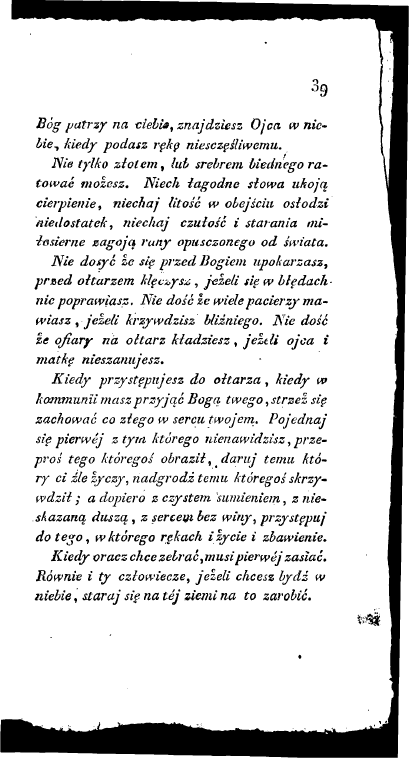 39
Bóg patrzy na ciebie, znajdziesz Ojca w nie-
bie, kiedy podasz rękę nieszczęśliwemu.
Nie tylko złotem, lub srebrem biednégo ra-
tować możesz. Niech łagodne słowa ukoją
cierpienie, niechaj litość w obejściu osłodzi
niedostatek, niechaj czułość i starania mi-
łosierne zagoją rany opuszczonego od świata.
Nie dosyć że się przed Bogiem upokarzasz,
przed ołtarzem klęczysz, jeżeli się w błędach
nic poprawiasz. Nie dość że wiele pacierzy ma-
wiasz, jeżeli krzywdzisz bliźniego. Nie dość
że ofiary na ołtarz kładziesz, jeżeli ojca i
matkę nieszanujesz.
Kiedy przystępujesz do ołtarza, kiedy w
kommunii masz przyjąć Boga twego, strzeż się
zachować co złego w sercu twojem. Pojednaj
się pierwéj z tym którego nienawidzisz, prze-
proś tego któregoś obraził, daruj temu któ-
ry ci źle życzy, nadgródź temu któregoś skrzy-
wdził; a dopiero z czystem sumieniem, z nie-
skazaną duszą, z sercem bez winy, przystępuj
do tego, w którego rękach i życie i zbawienie.
Kiedy oracz chce zebrać, musi pierwéj zasiać.
Równie i ty człowiecze, jeżeli chcesz bydź w
niebie, staraj się na téj ziemi na to zarobić.